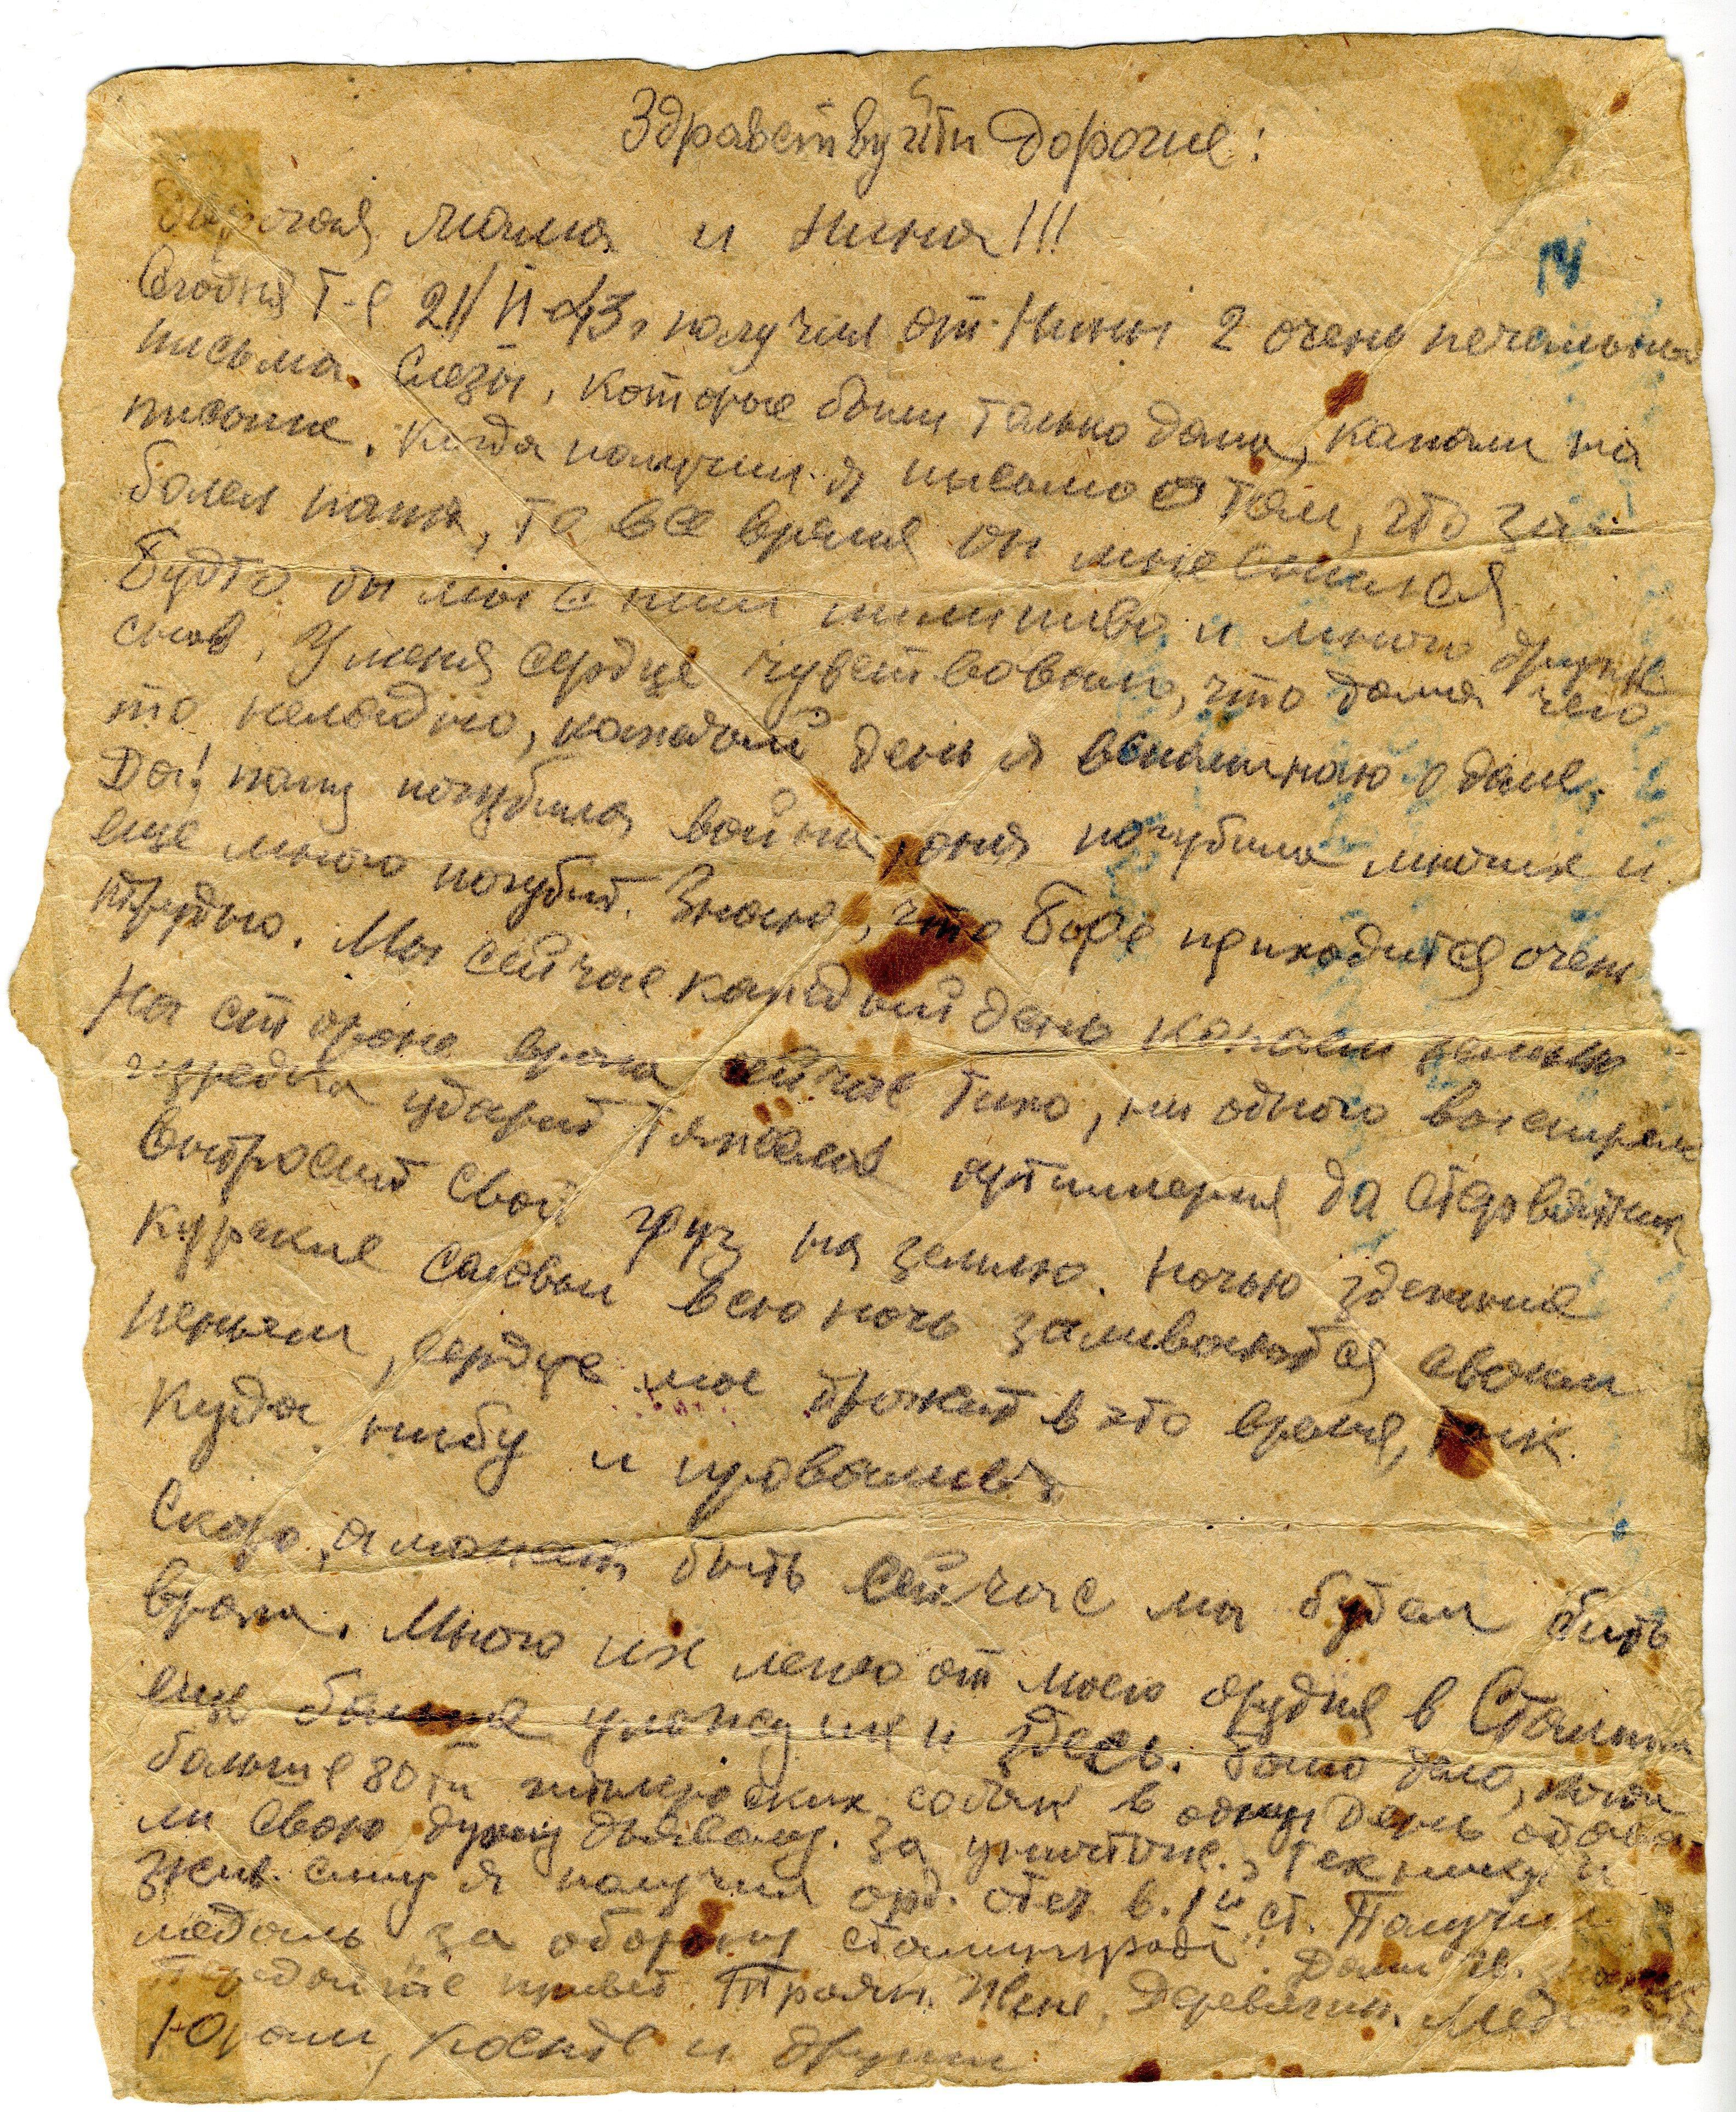 Здравствуйти дорогие!
Дорогая мама и Нина!!!
Сегодня т-е 21/VI-43г получил от Нины 2 очень печальных
письма. Слезы, которые были только дома, капали на
письмо. Когда получил я письмо о том, что за-
болел папа, то все время он мне снился
Будто бы мы с ним пили пиво и много других
снов. У меня сердце чувствовало, что дома чего
то неладно, каждый день я вспоминаю о доме.
Да! папу погубила война, она погубила многих и
еще много погубит. Знаю, что Боре приходится очень
трудно. Мы сейчас каждый день копаем землю
На стороне врага сейчас тихо, ни одного выстрела
изредка ударит тяжелая артиллерия да стервятник
выбросит свой груз на землю. Ночью здешние
курские соловьи всю ночь заливаются своим
пеньем, сердце мое дрожит в это время, так
куда нибу и провалился
Скоро, а может быть сейчас мы будем бить
врага. Много их легло от моего орудия в Сталин
еще больше уложу их и здесь. Было дело, когда
больше 80ти гитлеровских собак в один день отдава
ли свою душу дьяволу. За уничтож. технику и
жив. силу я получил орд. отеч в. 1й ст. Получил
медаль "за оборону сталинграда". Дали зв.
Передайте привет Троян. Жене, Деревягин.
Юрам, Косте и другим